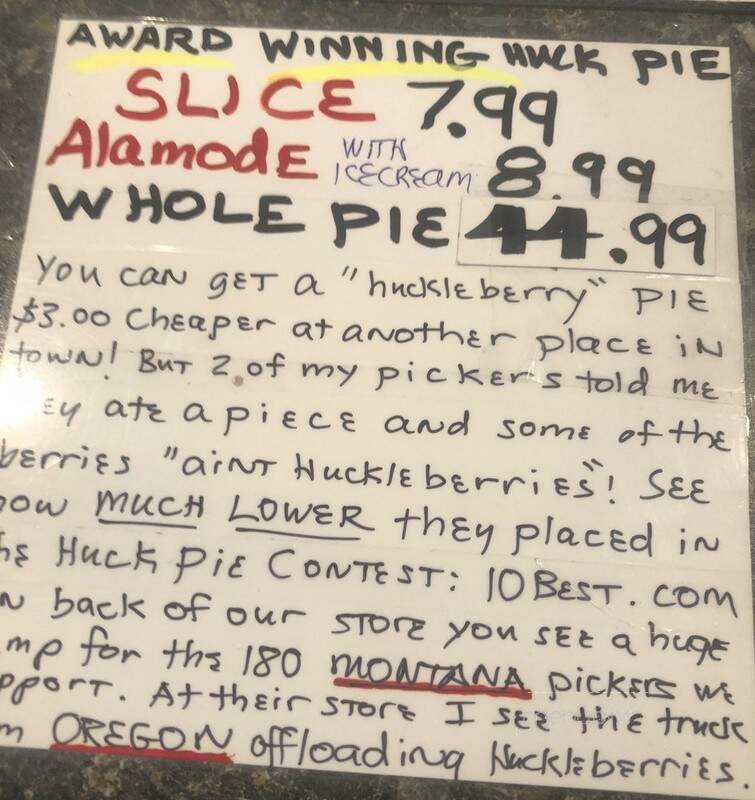 AWARD WINNING HUCK PIE
SLICE 7.99
AlamodE WITH ICECREAM 8.99
WHOLE PIE 44.99
You can get a "huckleberry" PIE
$3.00 Cheaper at another place in
town! But 2 of my pickers told me
ey ate a piece and some of the
berries "aint Huckleberries"! SEE
ow MUCH LOWER they placed in
he Huck Pie Contest: 10BEST.com
n back of our store you see a huge
mp for the 180 MONTANA pickers we
pport. At their store I see the truck
m OREGON offloading Huckleberries.